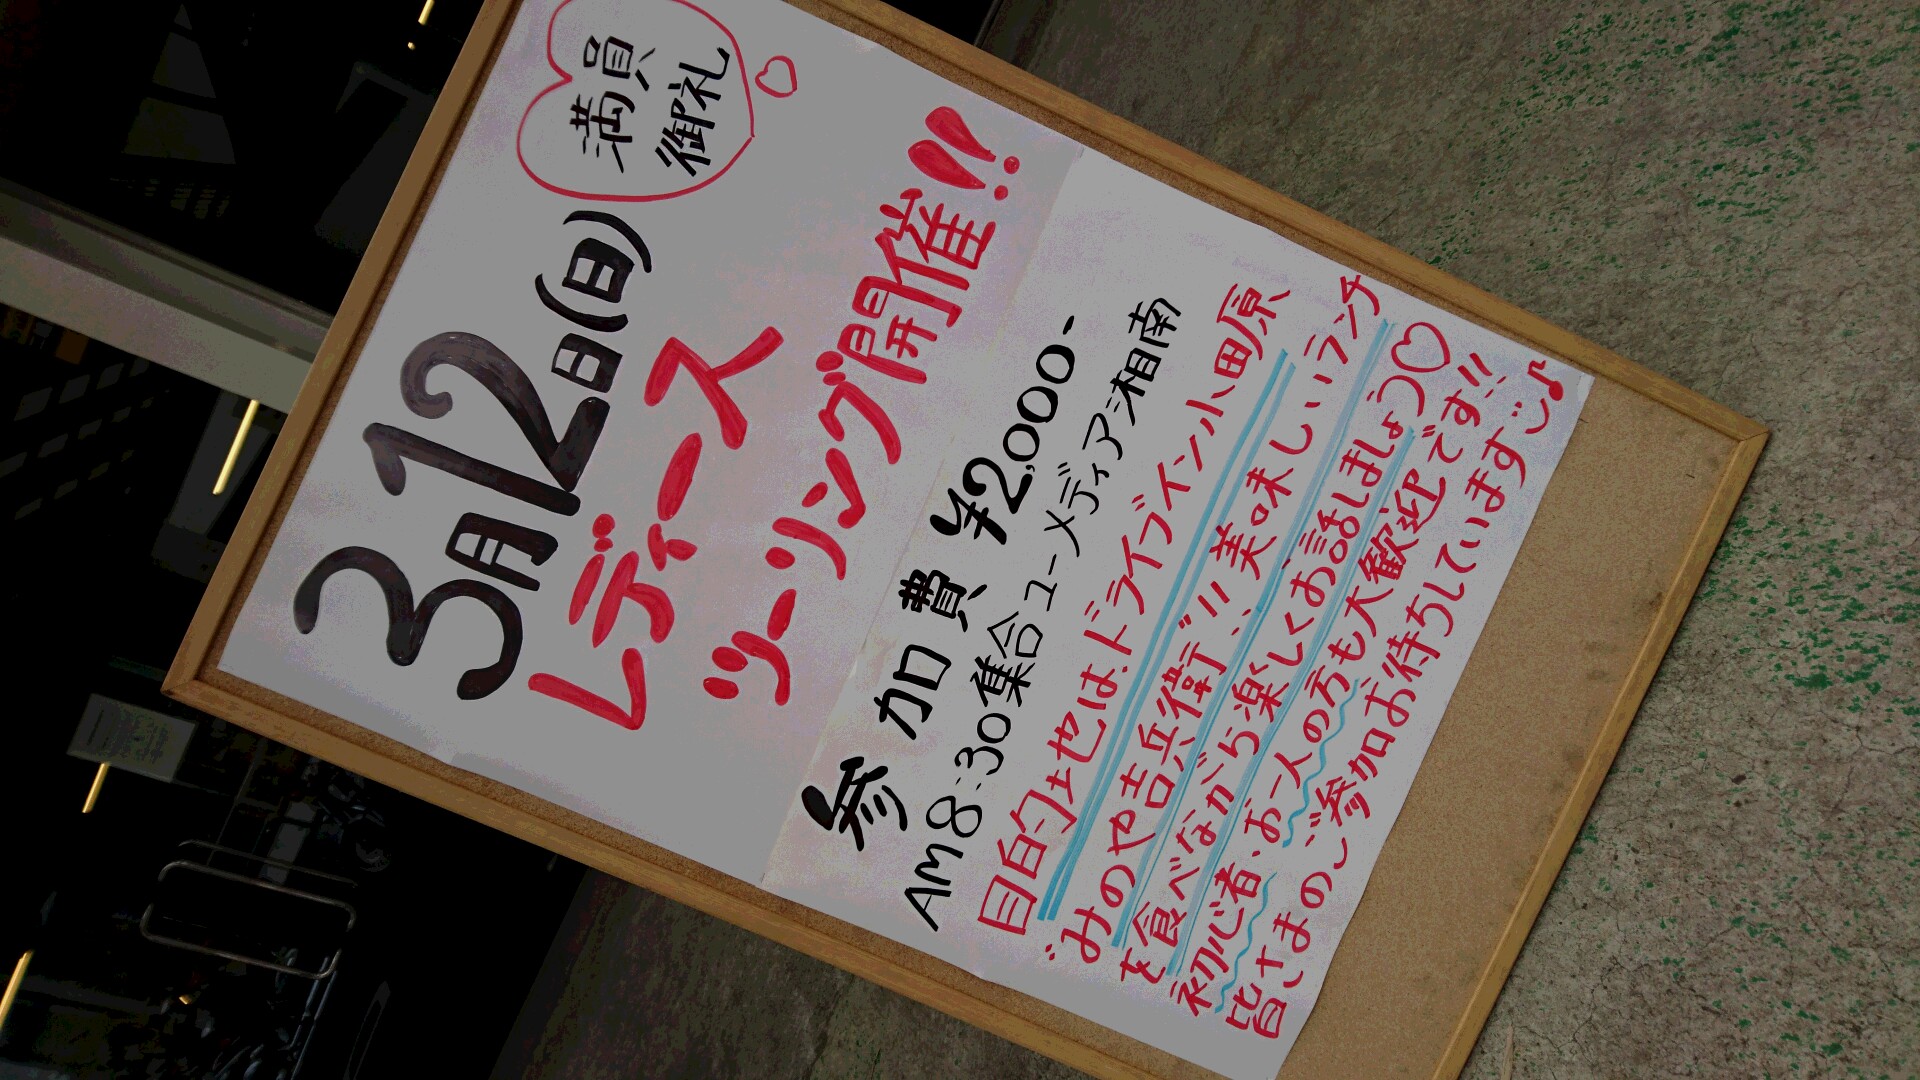 満員
御礼
3月12日(日)
レディース
ツーリング開催!!
参加費 ¥2,000-
AM8:30集合ユーメディア湘南
目的地はドライブイン小田原
"みのや吉兵衛"!! 美味しいランチ
を食べながら楽しくお話しましょう♡
初心者・お一人の方も大歓迎です!!
皆さまのご参加お待ちしています♪